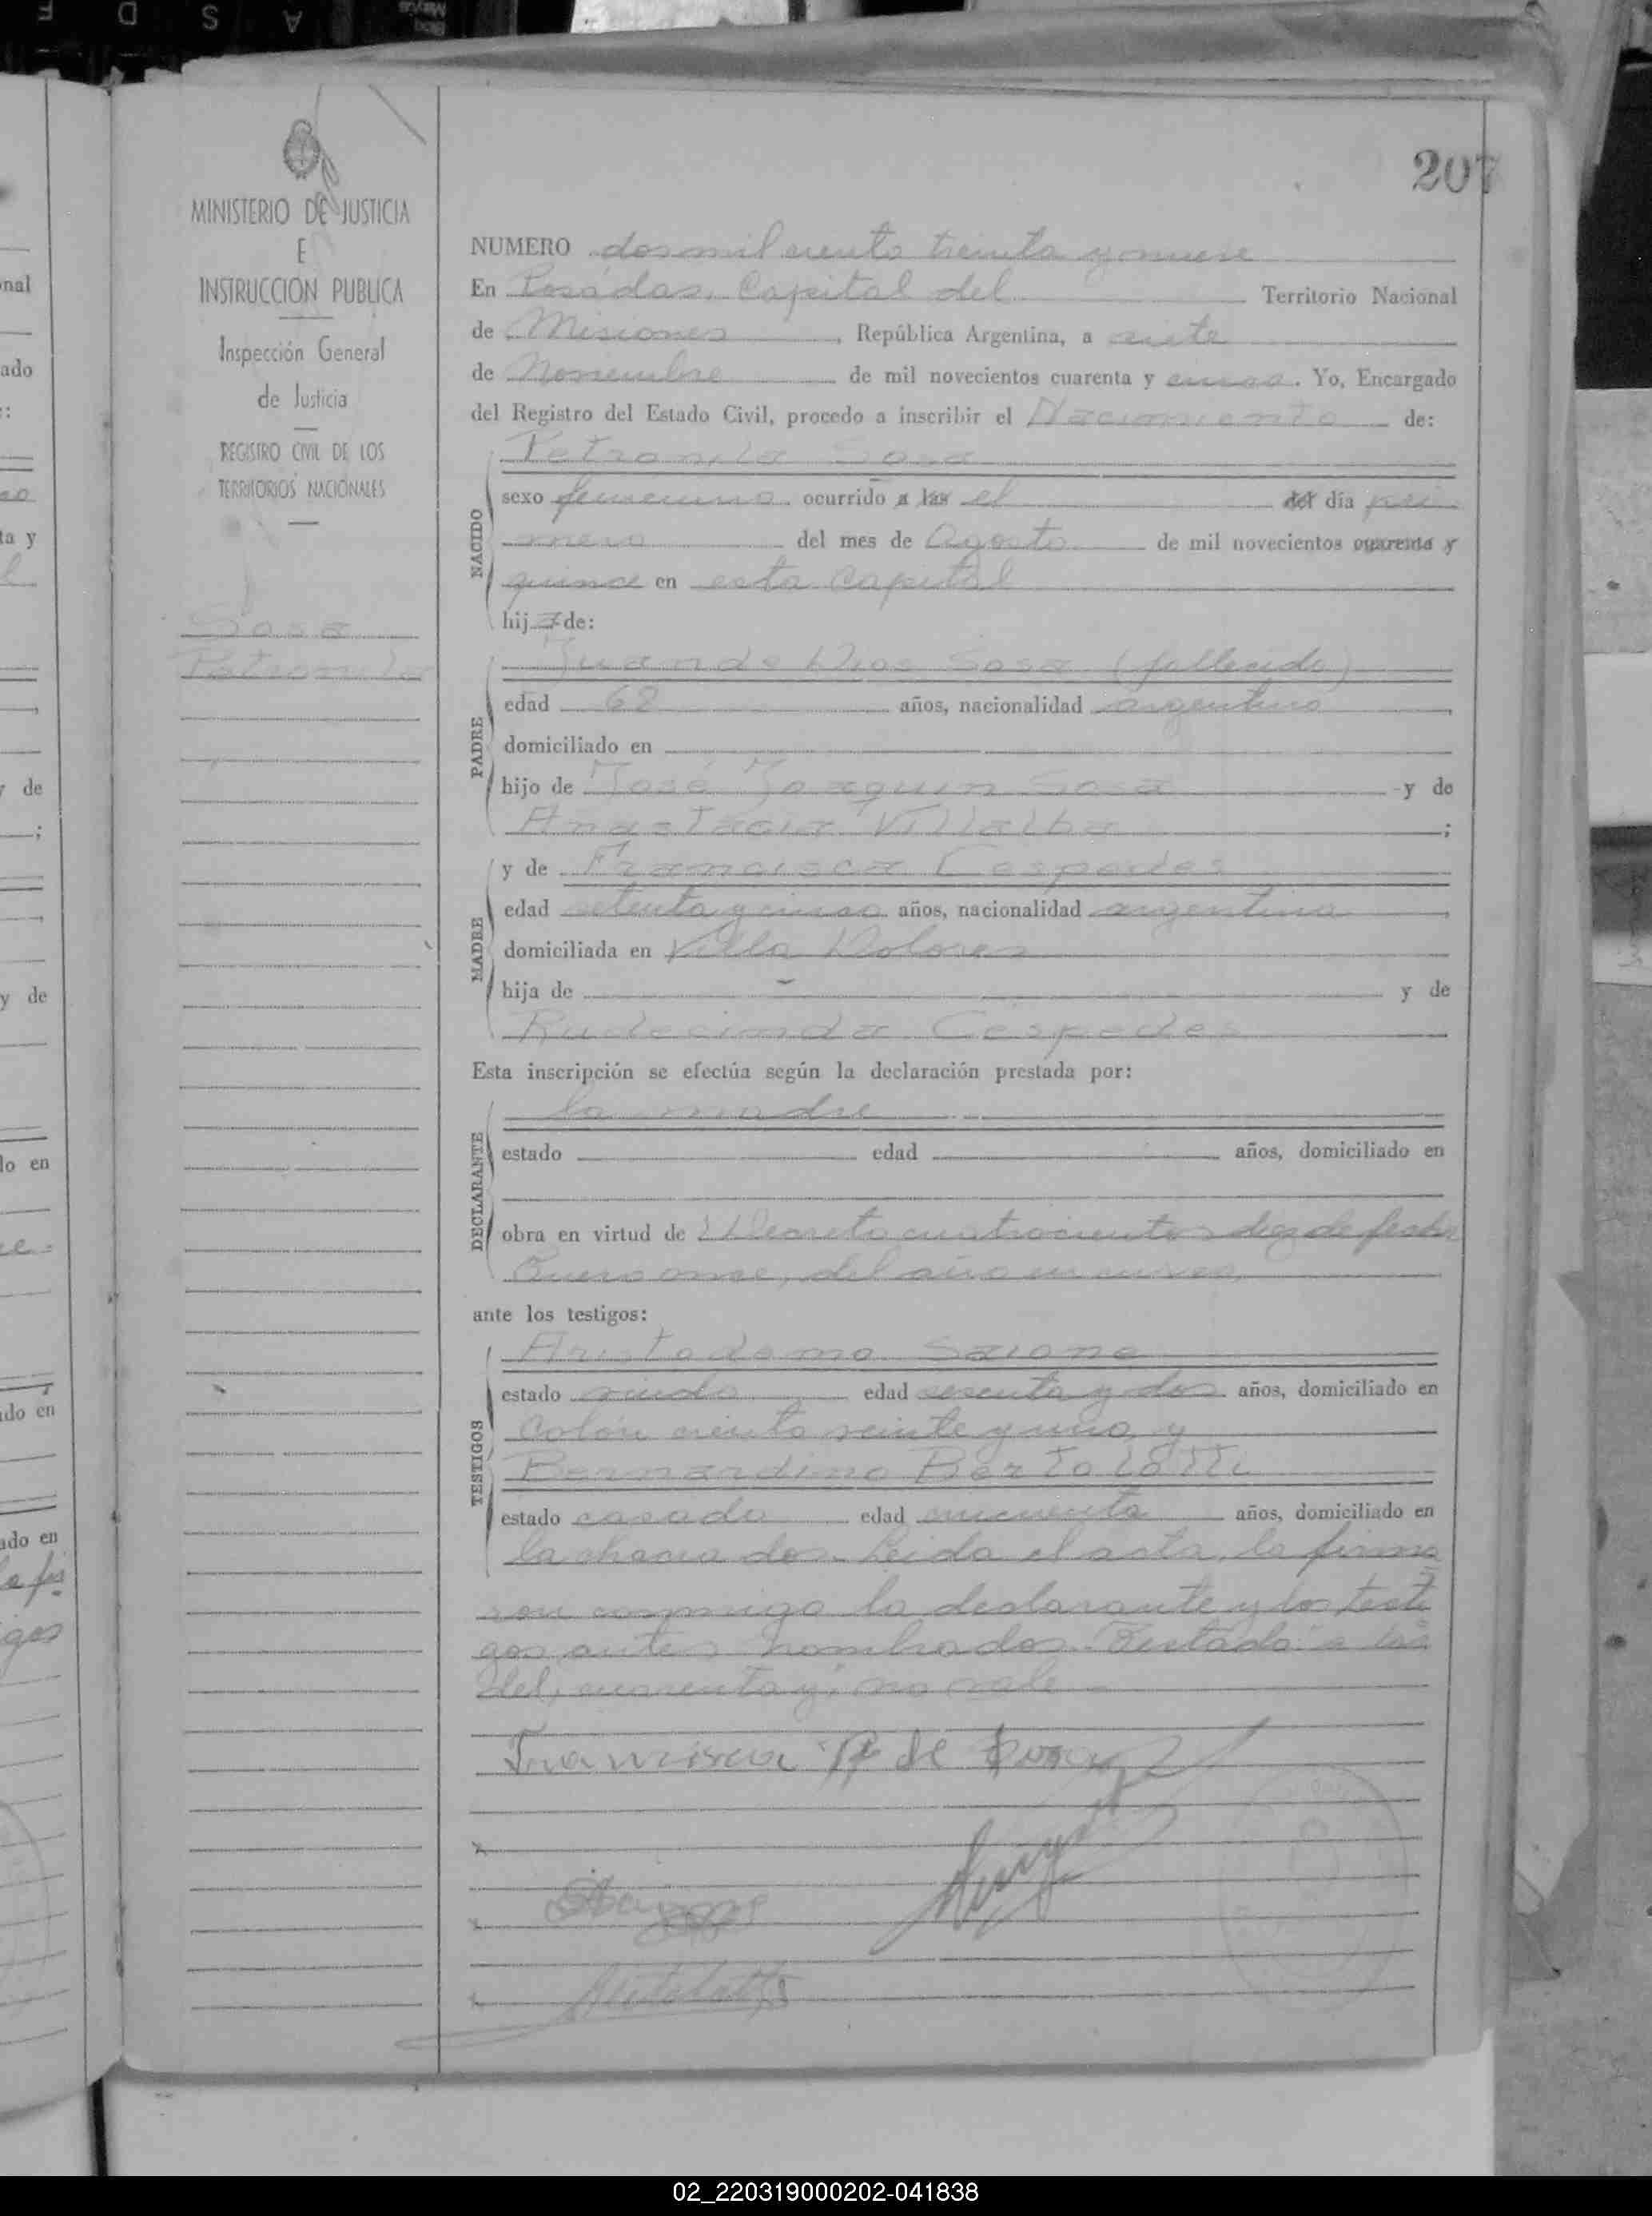 207
MINISTERIO DE JUSTICIA
E
INSTRUCCION PUBLICA
Inspección General
de Justicia
REGISTRO CIVIL DE LOS
TERRITORIOS NACIONALES
Sosa
Petronila
NUMERO dos mil ciento treinta y nueve
En Posadas, Capital del Territorio Nacional
de Misiones, República Argentina, a siete
de Noviembre de mil novecientos cuarenta y cinco. Yo, Encargado
del Registro del Estado Civil, procedo a inscribir el Nacimiento de:
Petronila Sosa
NACIDO
sexo femenino ocurrido a las el del día pri
mero del mes de Agosto de mil novecientos cuarenta y
quince en esta Capital
hija de:
PADRE
Juan de Dios Sosa (fallecido)
edad 68 años, nacionalidad argentino,
domiciliado en
hijo de José Joaquin Sosa y de
Anastacia Villalba;
MADRE
y de Francisca Cespedes
edad setenta y cinco años, nacionalidad argentina,
domiciliada en Villa Dolores
hija de - y de
Rudecinda Cespedes
Esta inscripción se efectúa según la declaración prestada por:
DECLARANTE
la madre
estado edad años, domiciliado en
obra en virtud de Decreto cuatrocientos diez de fecha
Enero once, del año en curso,
ante los testigos:
TESTIGOS
Aristodemo
estado viudo edad sesenta y dos años, domiciliado en
Colón ciento veinte y uno, y
Bernardino Bertolotti
estado casado edad cincuenta años, domiciliado en
la chacra dos. Leida el acta, la firma
ron conmigo la declarante y los testi
gos antes nombrados. Testado: "a las
del, cuarenta y", no vale.-
Francisca de Sosa
02_220319000202-041838